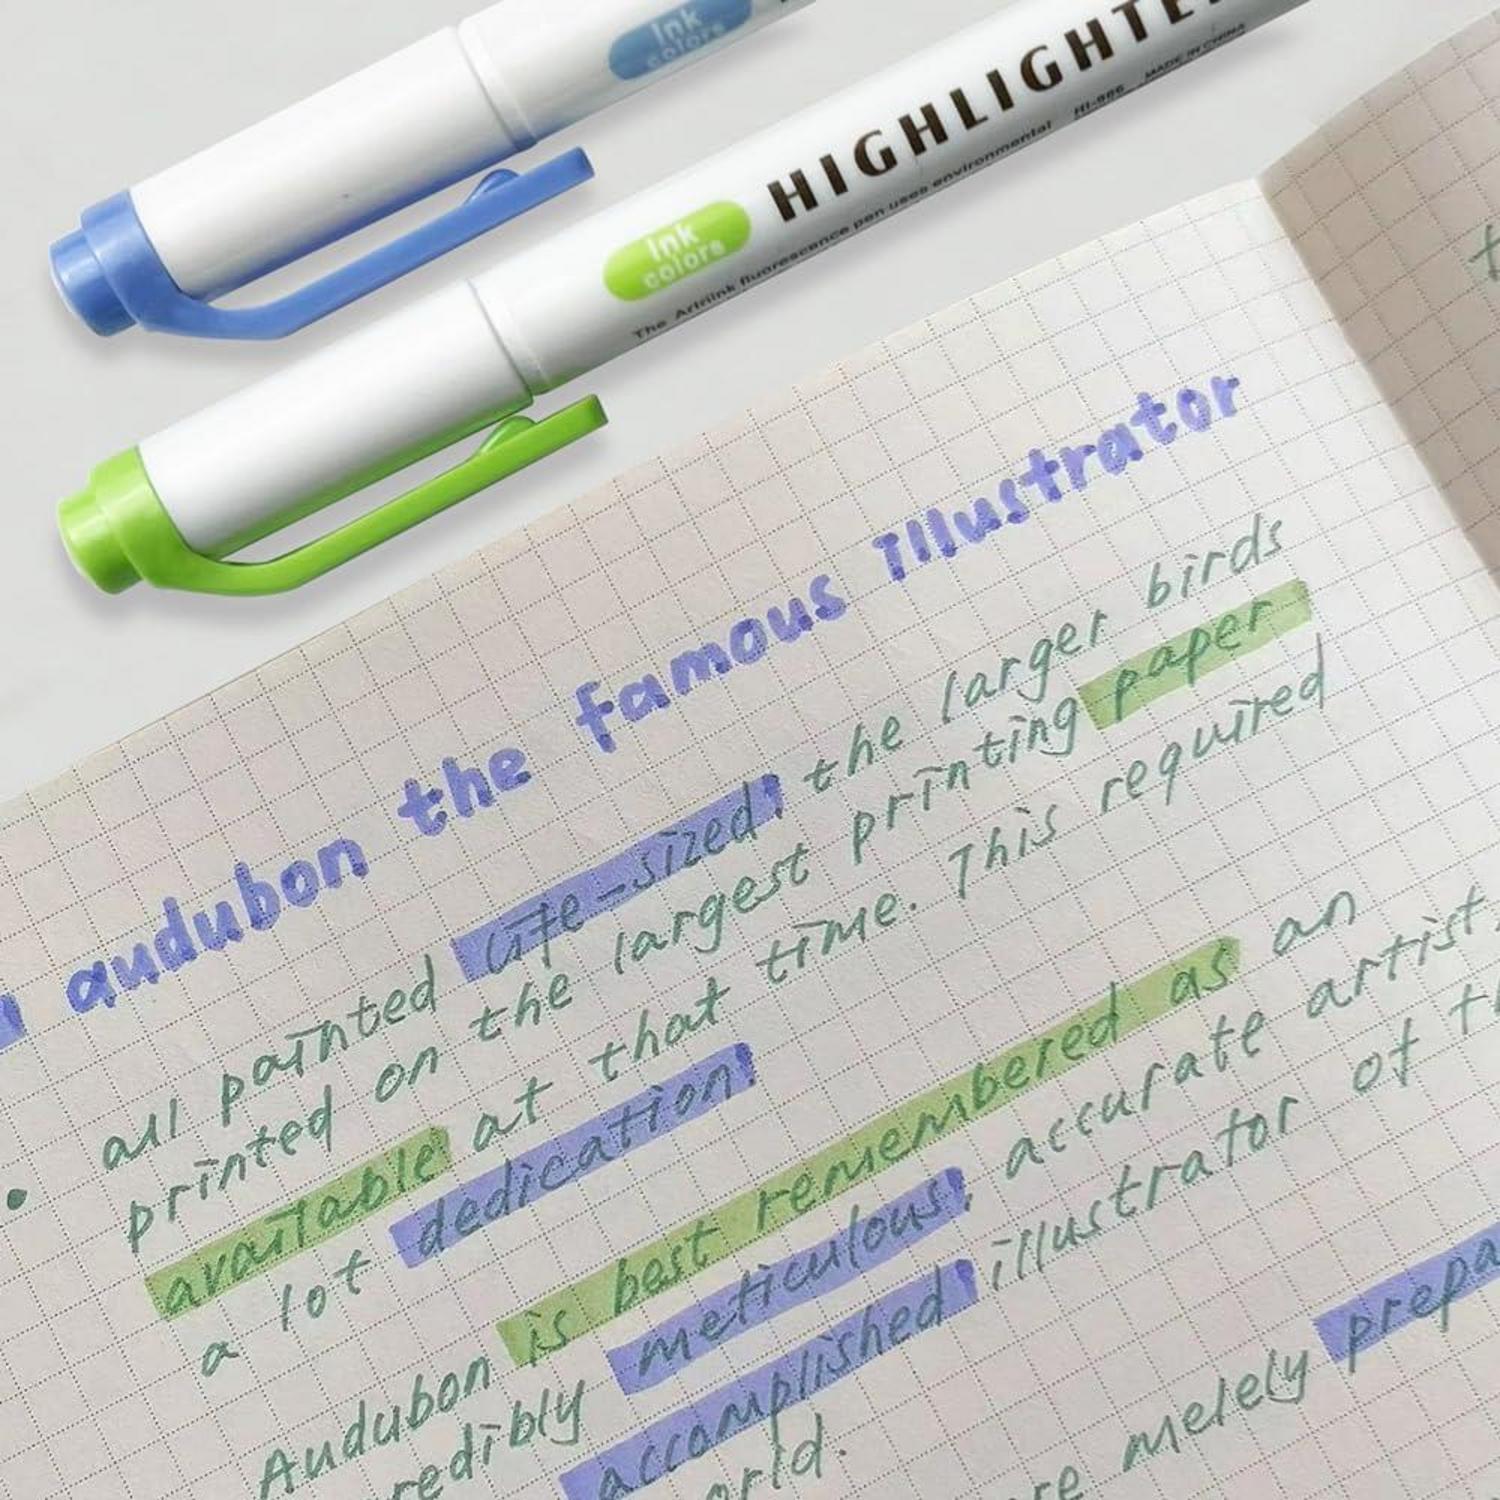 Ink
colors
HIGHLIGHTE
MADE IN CHINA
HI-986
Ink
colors
The Artriink fluorescence pen uses environmental
audubon the famous Illustrator
• all painted life-sized, the larger birds
printed on the largest printing paper
available at that time. This required
a lot dedication!
Audubon is best remembered as an
redibly meticulous, accurate artist,
accomplished illustrator of th
orld.
re melely prepa